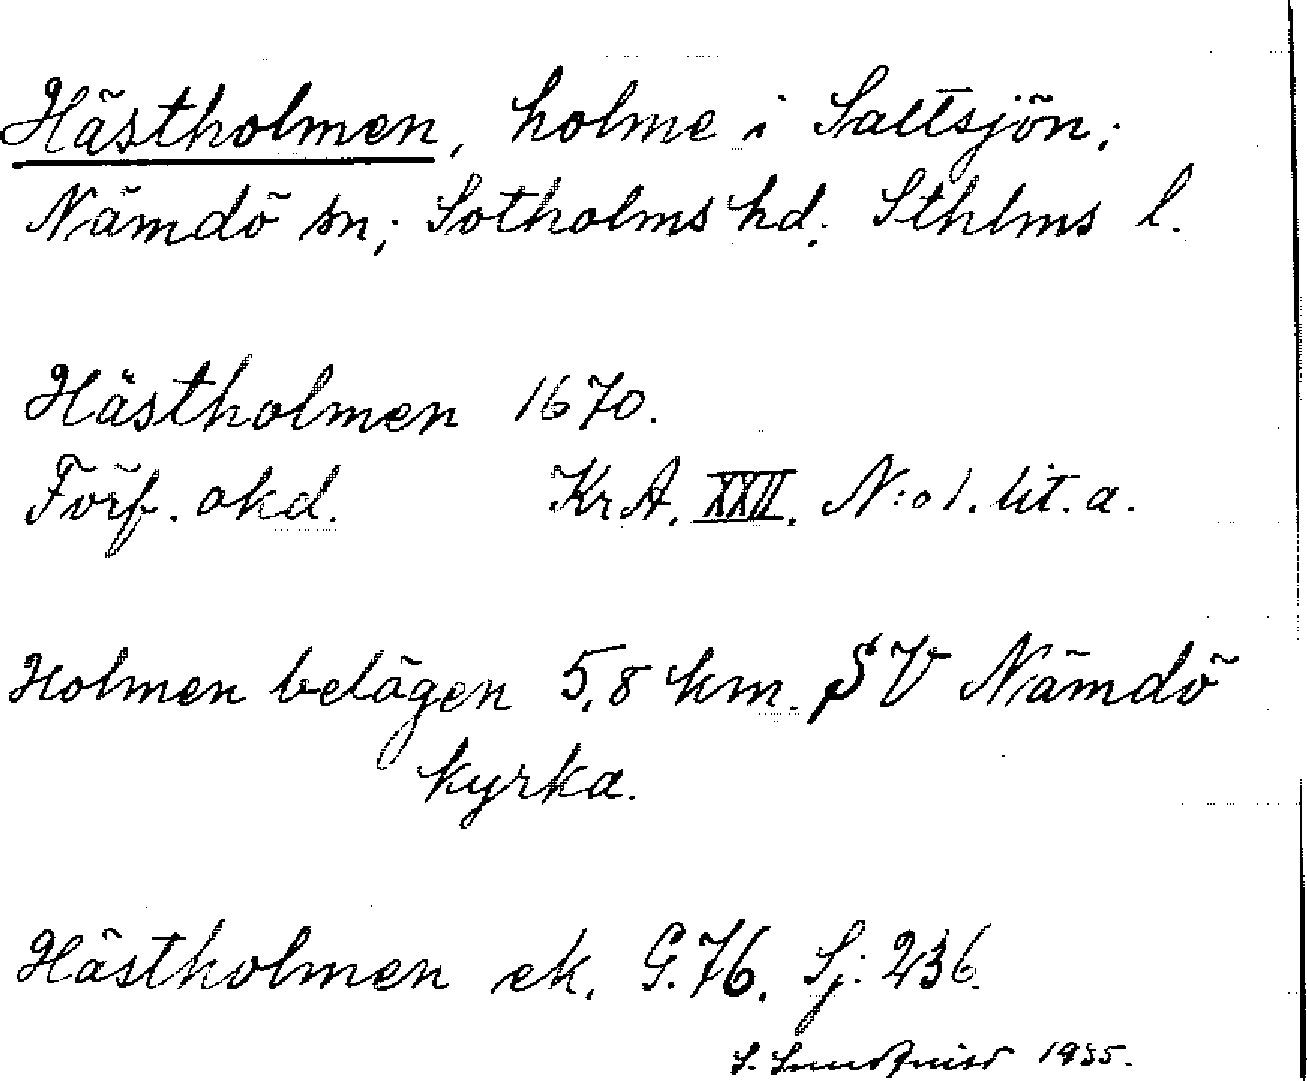 Hästholmen, holme i Saltsjön;
Nämdö sn; Sotholms hd. Sthlms l.
Hästholmen 1670.
Förf. okd. KrA. XXII. N:o 1. lit. a.
Holmen belägen 5,8 km. SV Nämdö
kyrka.
Hästholmen ek. G.76. Sj: 236.
S. 1935.